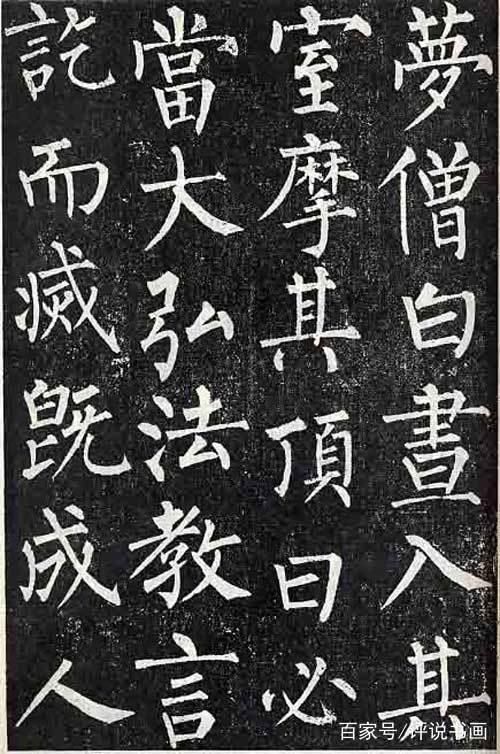 夢僧白晝入其
室摩其頂曰必
當大弘法教言
訖而滅既成人
百家号/评说书画